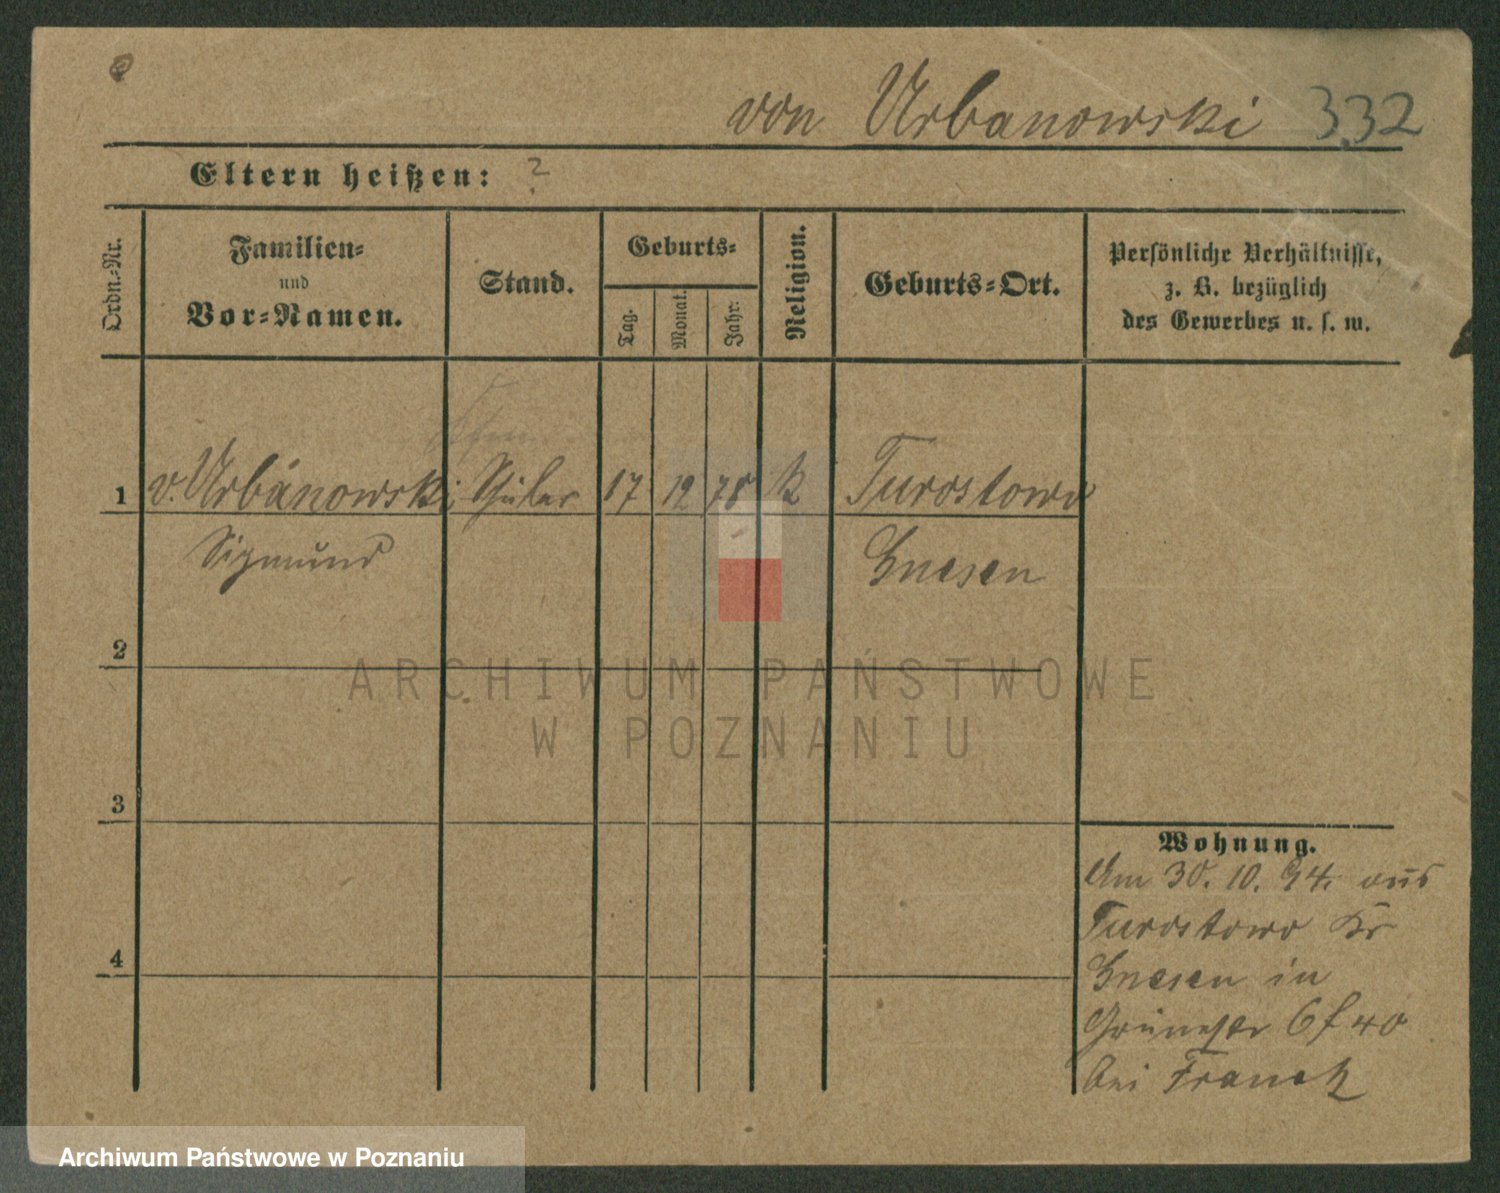 von Urbanowski 332
Eltern heißen: ?
Ordn.-Nr.
Familien-
und
Vor-Namen.
Stand.
Geburts-
Tag.
Monat.
Jahr.
Religion.
Geburts-Ort.
Persönliche Verhältnisse,
z. B. bezüglich
des Gewerbes u. s. w.
1 v. Urbanowski Schüler 17 12 78 k Turostowo
Sigmund Gnesen
2
3
4
Wohnung.
Am 30. 10. 94. aus
Turostowo Kr
Gnesen in
Grünestr 6 f 40
bei Franck
ARCHIWUM PAŃSTWOWE
W POZNANIU
Archiwum Państwowe w Poznaniu